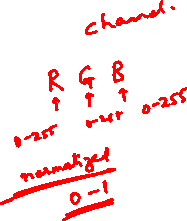 channel.
R G B
0-255 0-255 0-255
normalized
0-1